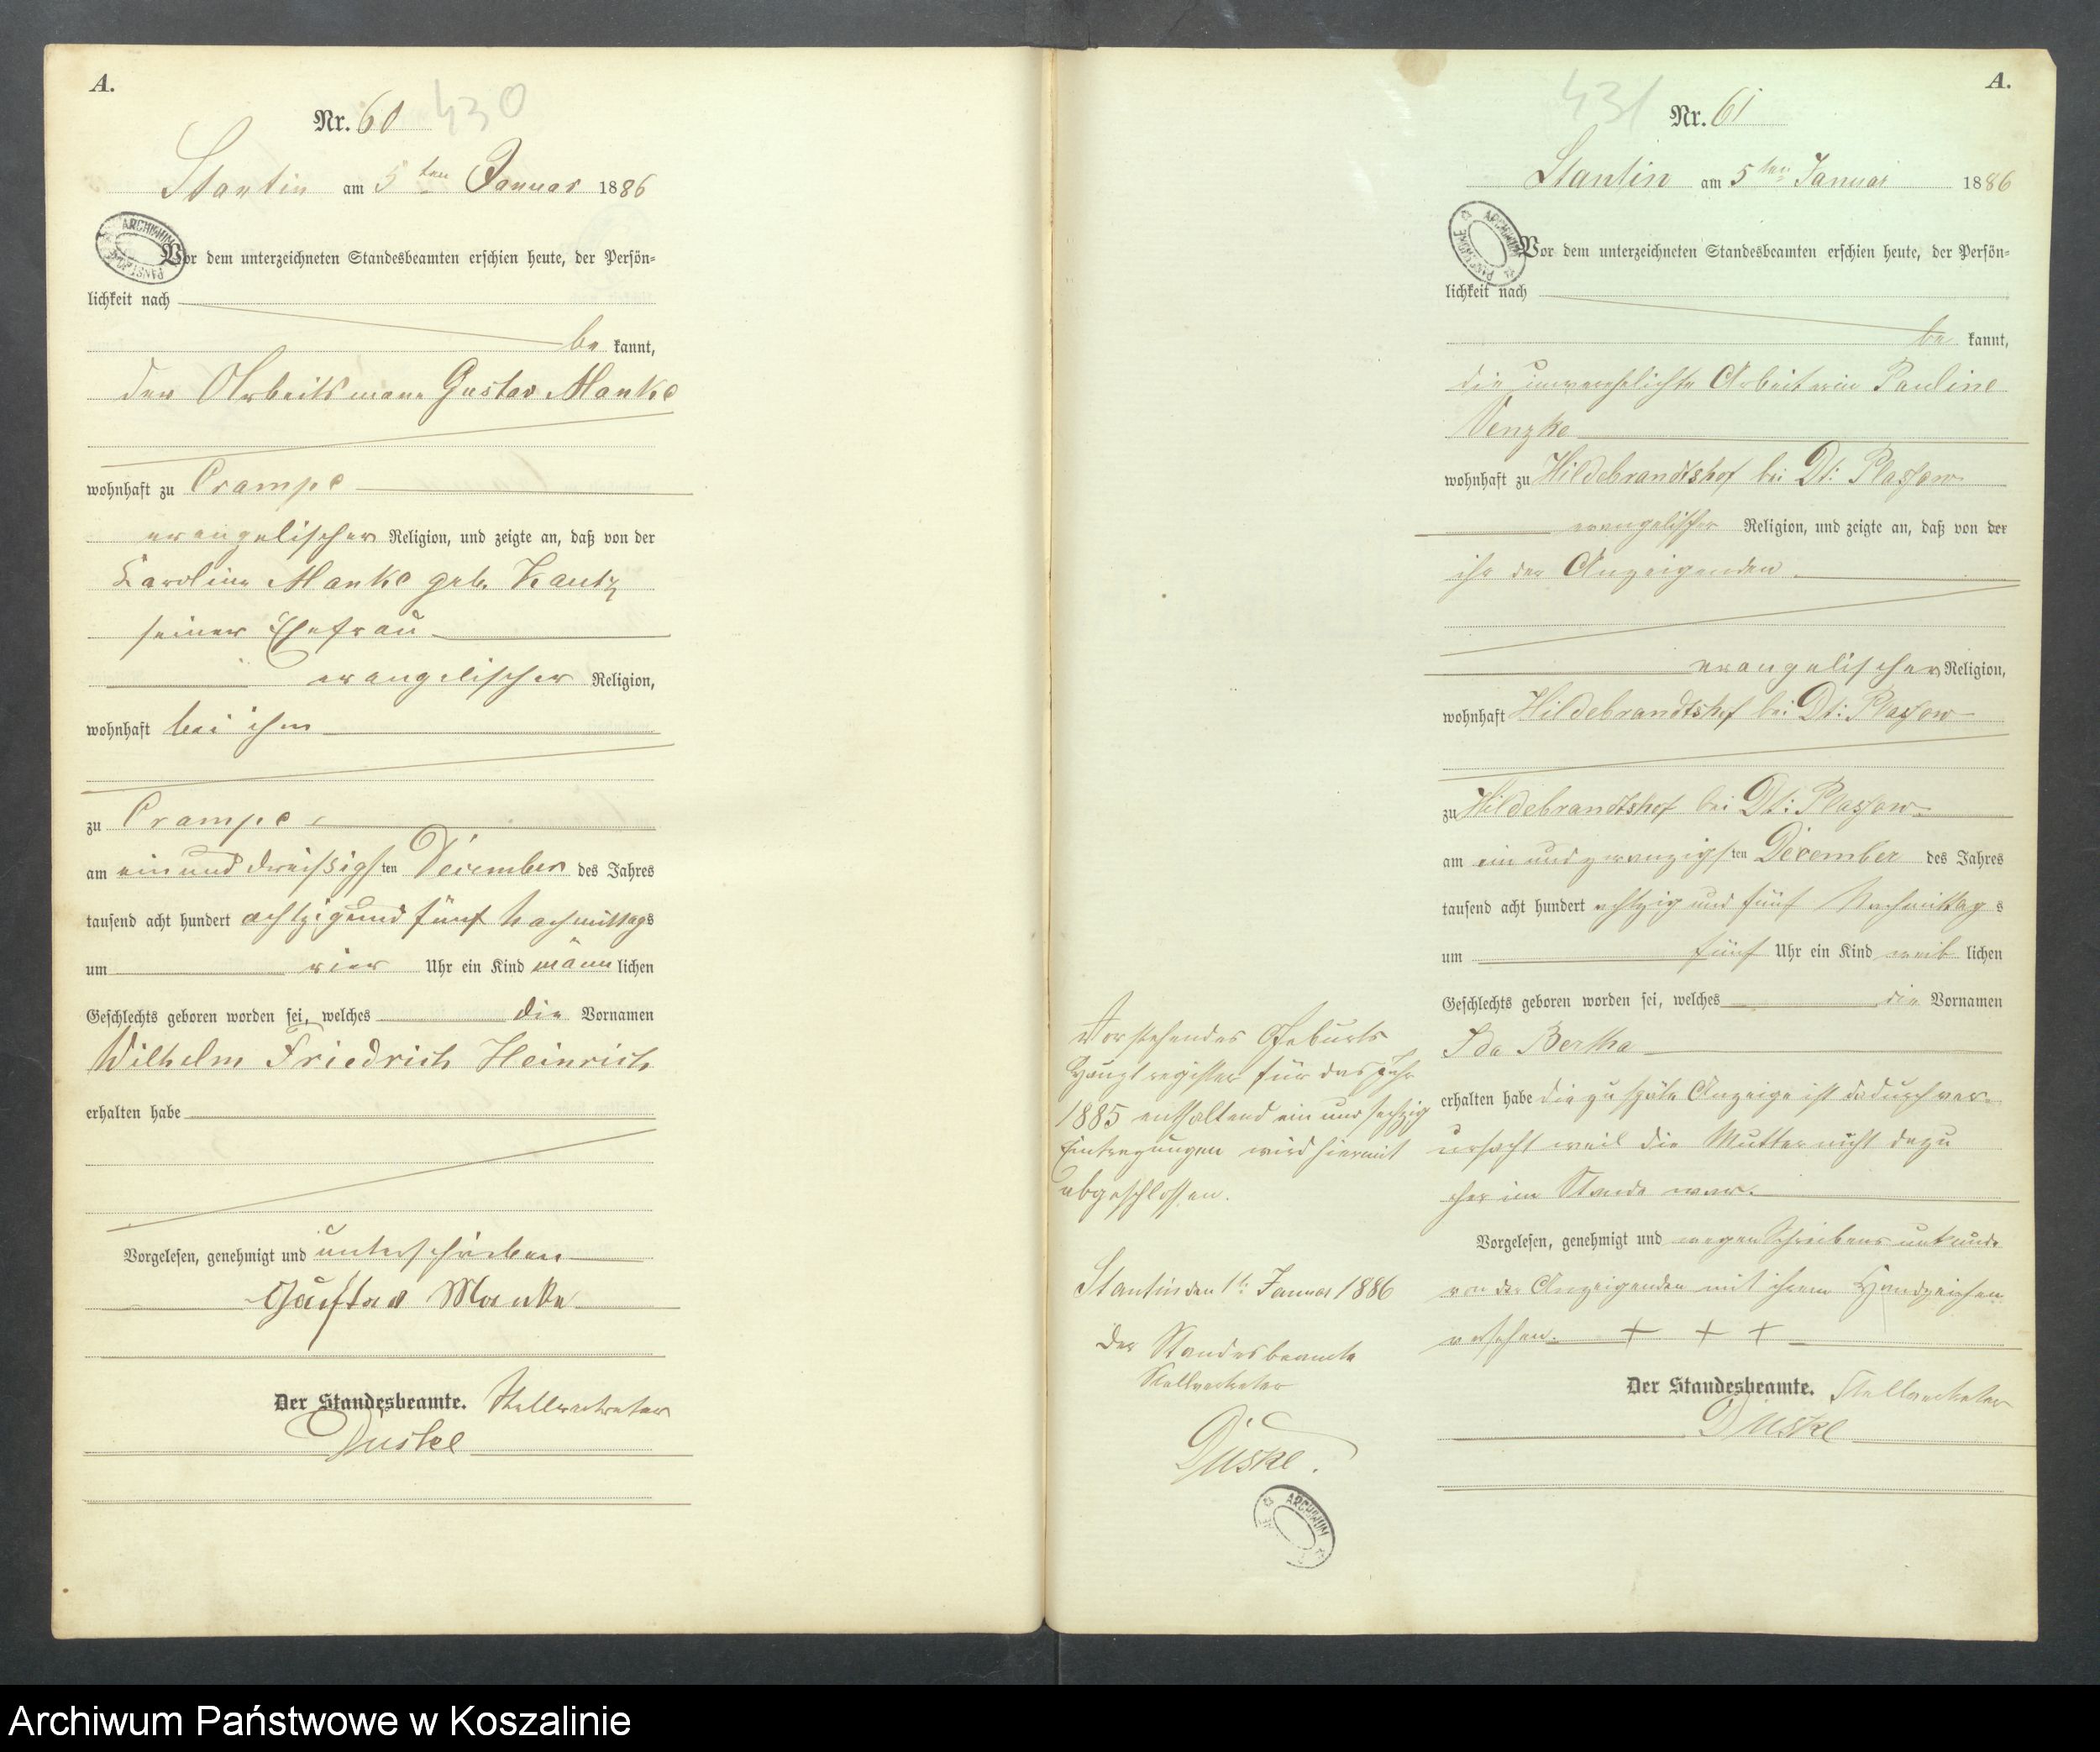 A.
Nr. 60 430
Stantin am 5ten Januar 1886
ARCHIWUM PAŃSTWOWE
Vor dem unterzeichneten Standesbeamten erschien heute, der Persön-
lichkeit nach
be kannt,
der Arbeitsmann Gustav Manke
wohnhaft zu Crampe
evangelischer Religion, und zeigte an, daß von der
Karoline Manke geb. Kautz
seiner Ehefrau
evangelischer Religion,
wohnhaft bei ihm
zu Crampe
am ein und dreißigsten December des Jahres
tausend acht hundert achtzig und fünf Nachmittags
um vier Uhr ein Kind männlichen
Geschlechts geboren worden sei, welches die Vornamen
Wilhelm Friedrich Heinrich
erhalten habe
Vorgelesen, genehmigt und unterschrieben
Gustav Manke
Der Standesbeamte. Stellvertreter
Düske
Vorstehendes Geburts
Hauptregister für das Jahr
1885 enthaltend ein und sechzig
Eintragungen wird hiermit
abgeschlossen.
Stantin den 1t Januar 1886
Der Standesbeamte
Stellvertreter
Düske.
ARCHIWUM
A.
431 Nr. 61
Stantin am 5ten Januar 1886
ARCHIWUM PAŃSTWOWE
Vor dem unterzeichneten Standesbeamten erschien heute, der Persön-
lichkeit nach
be kannt,
die unverehelichte Arbeiterin Pauline
Venzke
wohnhaft zu Hildebrandtshof bei Dt: Plassow
evangelischer Religion, und zeigte an, daß von der
ihr der Anzeigenden
evangelischer Religion,
wohnhaft Hildebrandtshof bei Dt: Plassow
zu Hildebrandtshof bei Dt: Plassow
am ein und zwanzigsten December des Jahres
tausend acht hundert achtzig und fünf Nachmittags
um fünf Uhr ein Kind weiblichen
Geschlechts geboren worden sei, welches die Vornamen
Ida Bertha
erhalten habe die zu späte Anzeige ist dadurch ver-
ursacht weil die Mutter nicht dazu
eher im Stande war.
Vorgelesen, genehmigt und wegen Schreibensunkunde
von der Anzeigenden mit ihrem Handzeichen
versehen. + + +
Der Standesbeamte. Stellvertreter
Düske
Archiwum Państwowe w Koszalinie